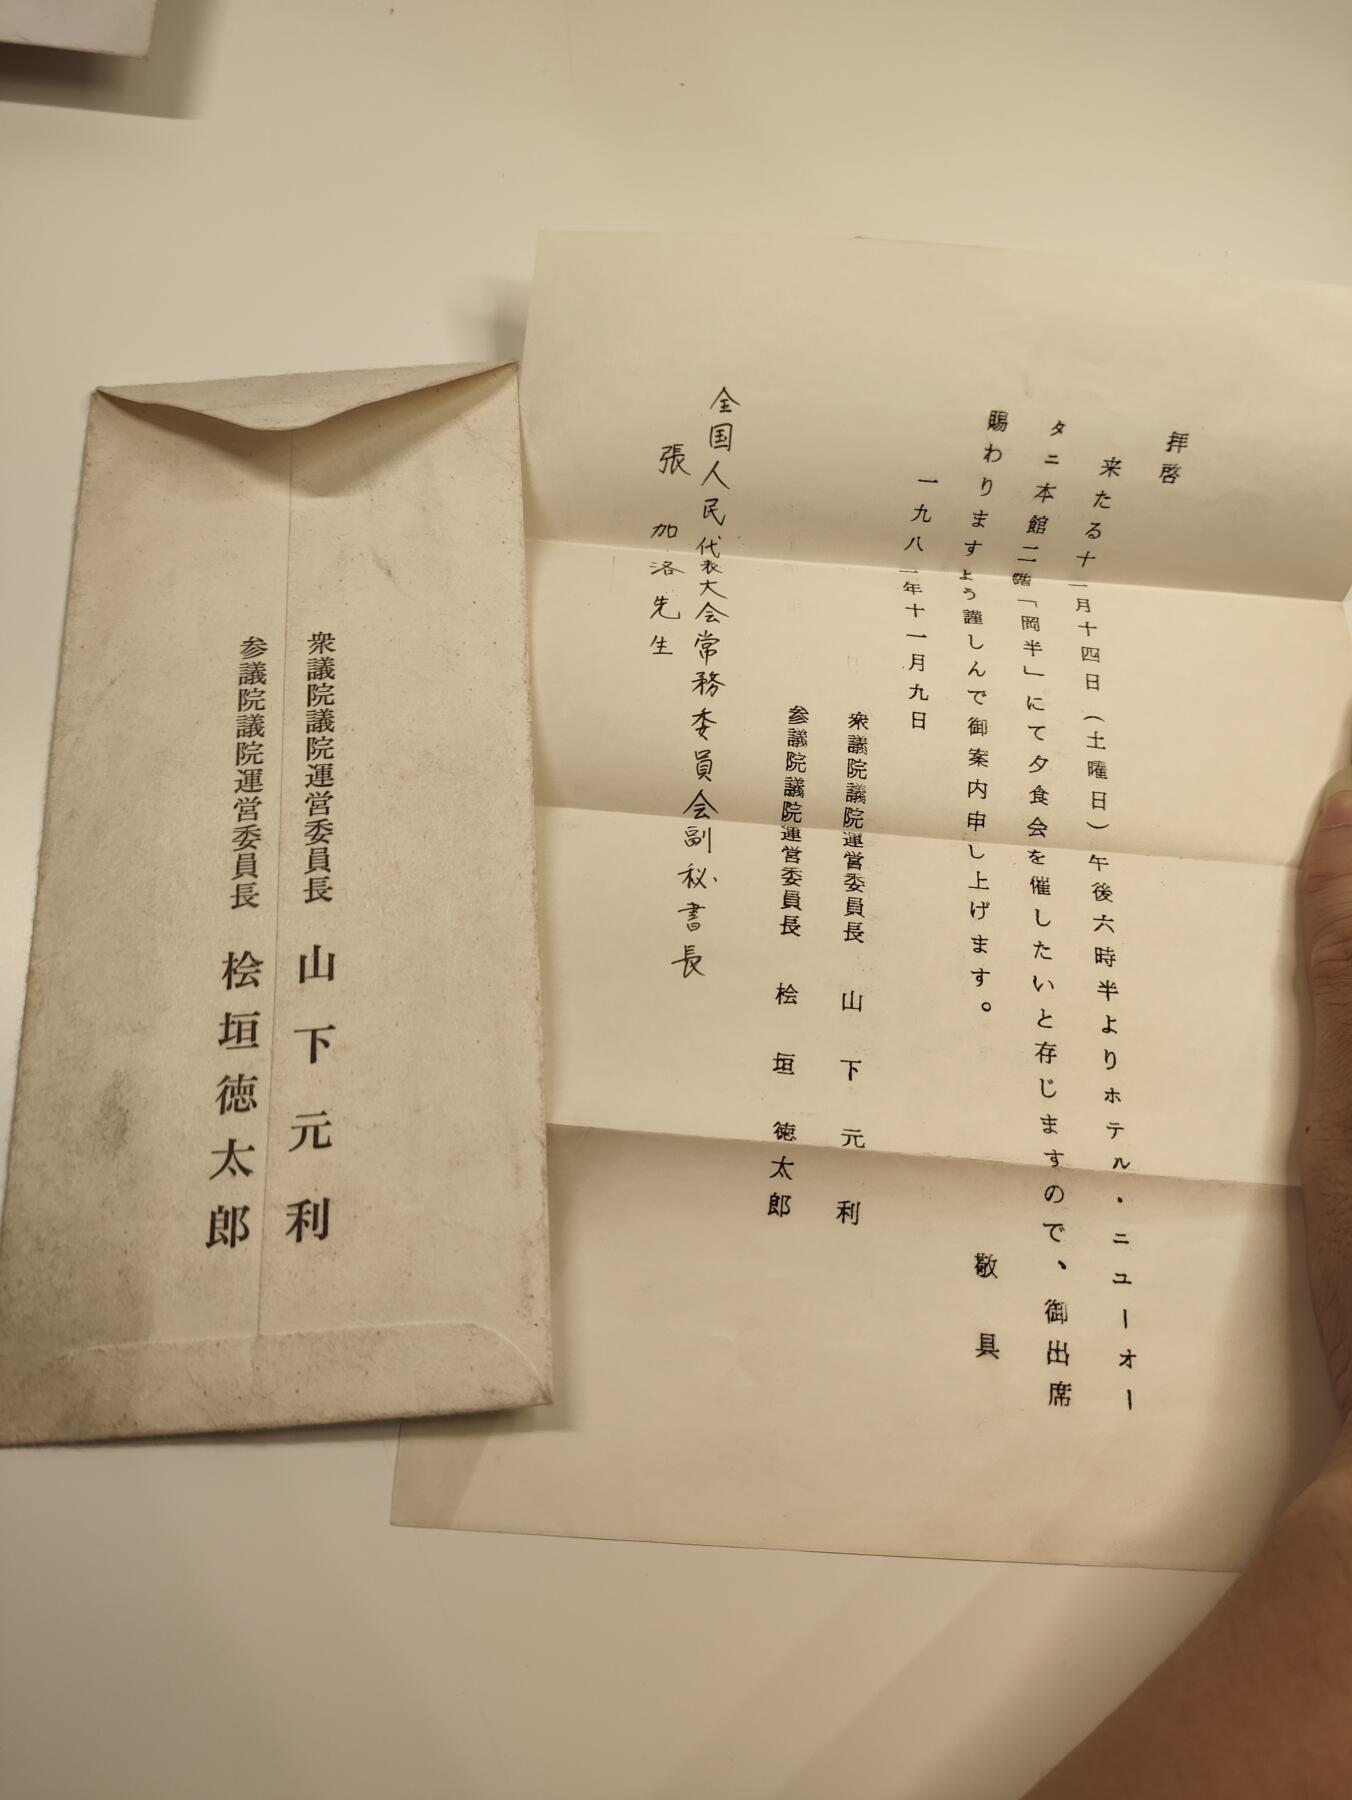 拝啓
来たる十一月十四日(土曜日)午後六時半よりホテル・ニューオー
タニ本館二階「岡半」にて夕食会を催したいと存じますので、御出席
賜わりますよう謹しんで御案内申し上げます。
敬具
一九八一年十一月九日
衆議院議院運営委員長 山下元利
参議院議院運営委員長 桧垣徳太郎
全国人民代表大会常務委員会副秘書長
張 加洛先生
衆議院議院運営委員長 山下元利
参議院議院運営委員長 桧垣徳太郎